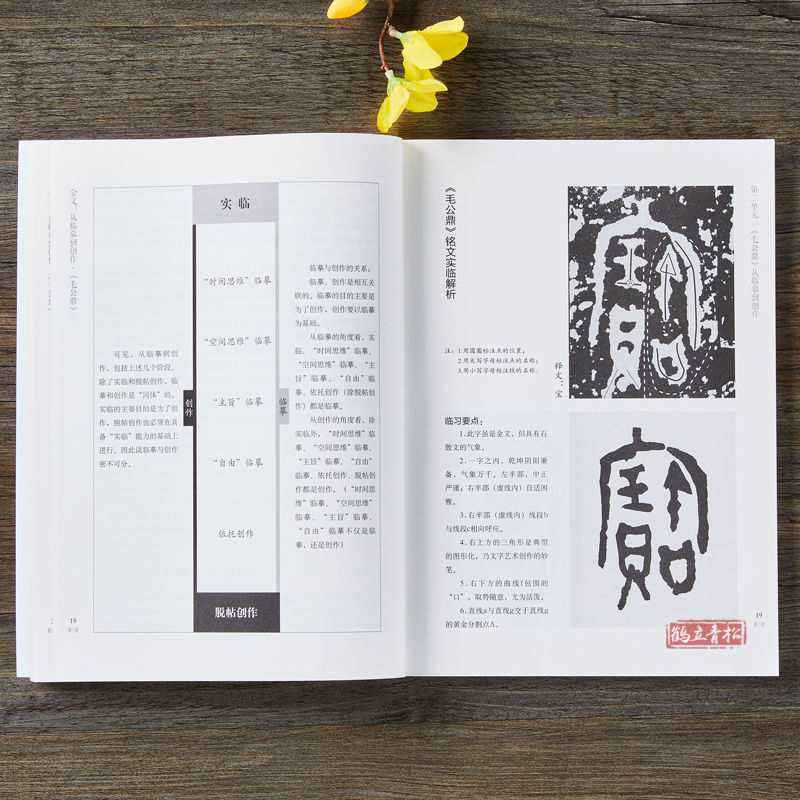 金文：从临摹到创作·《毛公鼎》
可见，从临摹到创
作，包括上述几个阶段。
除了实临和脱帖创作，临
摹和创作是“同体”的。
实临的主要目的是为了创
作。脱帖创作也必须在具
备“实临”能力的基础上
进行。因此说临摹与创作
密不可分。
创作
实临
“时间思维”临摹
“空间思维”临摹
“主旨”临摹
“自由”临摹
依托创作
脱帖创作
临摹
临摹与创作的关系：
临摹、创作是相互关
联的。临摹的目的主要是
为了创作，创作要以临摹
为基础。
从临摹的角度看，实
临、“时间思维”临摹、
“空间思维”临摹、“主
旨”临摹、“自由”临
摹、依托创作（除脱帖创
作）都是临摹。
从创作的角度看，除
实临外，“时间思维”临
摹、“空间思维”临摹、
“主旨”临摹、“自由”
临摹、依托创作、脱帖创
作都是创作。（“时间思
维”临摹、“空间思维”
临摹、“主旨”临摹、
“自由”临摹不仅是临
摹，还是创作）
18
《毛公鼎》铭文实临解析
注：1.用圆圈标注点的位置；
2.用大写字母标注点的名称；
3.用小写字母标注线的名称。
释文：宝
临习要点：
1.此字虽是金文，但具有石
鼓文的气象。
2.一字之内，乾坤阴阳兼
备，气象万千。左半部，中正
严谨；右半部（虚线内）自适闲
雅。
3.右半部（虚线内）线段b
与线段c相向呼应。
4.右上方的三角形是典型
的图形化，乃文字艺术创作的妙
笔。
5.右下方的曲线f包围的
“口”，取势随意，尤为活泼。
6.直线a与直线g交于直线g
的黄金分割点A。
第一单元 《毛公鼎》从临摹到创作
19
鹤立青松